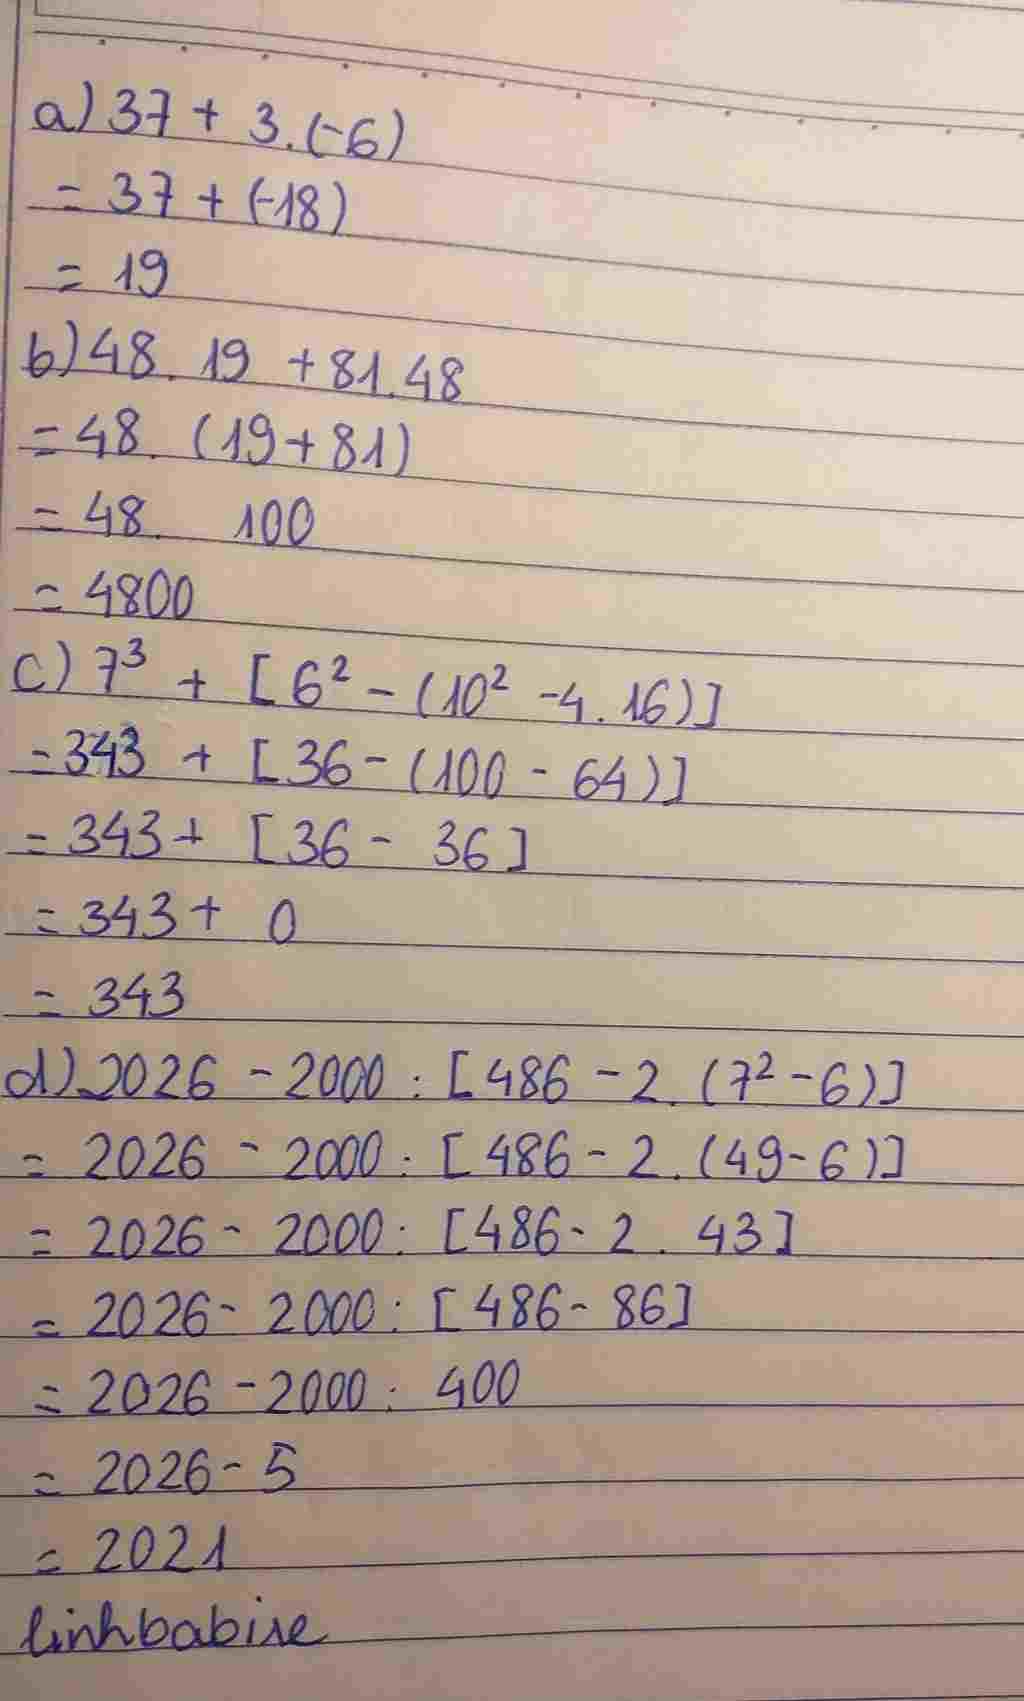 a) 37 + 3.(-6)
= 37 + (-18)
= 19
b) 48. 19 + 81.48
= 48. (19 + 81)
= 48. 100
= 4800
c) 7³ + [6² - (10² - 4. 16)]
= 343 + [36 - (100 - 64)]
= 343 + [36 - 36]
= 343 + 0
= 343
d) 2026 - 2000 : [486 - 2. (7² - 6)]
= 2026 - 2000 : [486 - 2. (49 - 6)]
= 2026 - 2000 : [486 - 2. 43]
= 2026 - 2000 : [486 - 86]
= 2026 - 2000 : 400
= 2026 - 5
= 2021
linhbabie